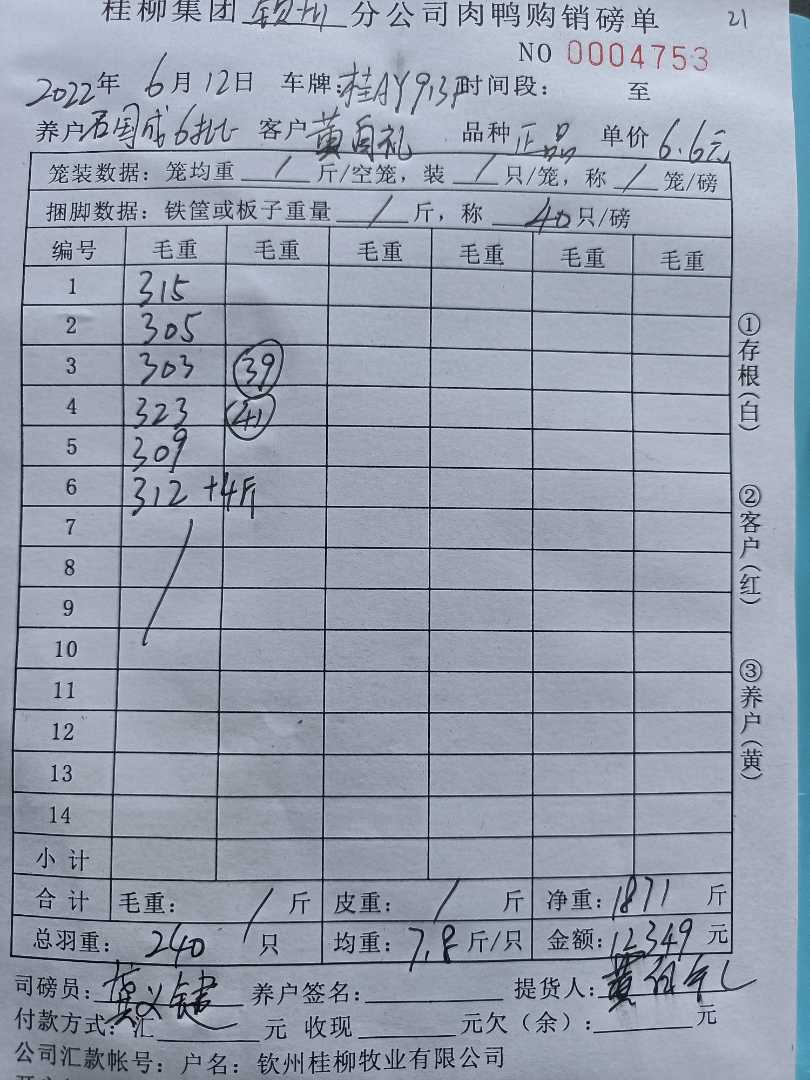 桂柳集团 钦州 分公司肉鸭购销磅单 21
NO 0004753
2022年 6月12日 车牌:桂AY913P时间段: 至
养户 石国成6批 客户 黄自礼 品种 正品 单价 6.6元
笼装数据: 笼均重 / 斤/空笼, 装 / 只/笼, 称 / 笼/磅
捆脚数据: 铁筐或板子重量 / 斤, 称 40只/磅
编号 毛重 毛重 毛重 毛重 毛重 毛重
1 315
2 305
3 303 39
4 323 41
5 309
6 312 +4斤
7
8
9
10
11
12
13
14
小计
合计 毛重: / 斤 皮重: / 斤 净重: 1871 斤
总羽重: 240 只 均重: 7.8 斤/只 金额: 12349 元
司磅员: 养户签名: 提货人:
付款方式: 汇 元 收现 元欠(余): 元
公司汇款帐号: 户名: 钦州桂柳牧业有限公司
①存根(白)
②客户(红)
③养户(黄)